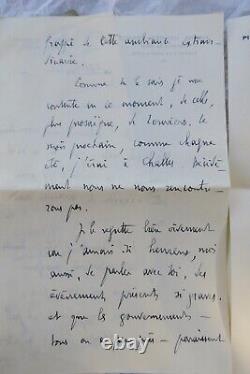 frappé de cette ambiance extraor-
dinaire.
Comme tu le sais je me
contente en ce moment, de celle,
plus prosaïque, de Louviers. Le
mois prochain, comme chaque
été, j'irai à Challes. Décidé-
ment nous ne nous rencontre-
rons pas.
Je le regrette bien vivement
car j'aurais été heureux, moi
aussi, de parler avec toi, des
événements présents si graves
et que les gouvernements -
tous on - paraissent